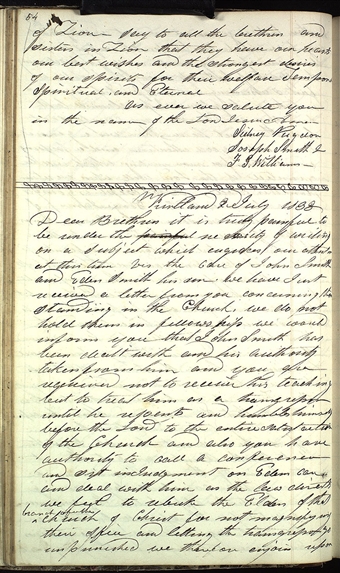 54
of Zion— say to all the brethren and
sisters in Zion that they have our hearts
our best wishes and the strongest desires
of our spirits for their welfare temporal
spiritual and Eternal
As ever we salute you
in the name of the Lord Jesus Amen
Sidney Rigdon
Joseph Smith Jr
F. G. Williams—
Kirtland 2 July 1833
Dear Brethren it is truly painful to
be under the necessity of writing
on a subject which engages our attention
at this time viz the case of John Smith
and Eden Smith his son we have Just
received a letter from you concerning their
standing in the Church, we do not
hold them in fellowship we would
inform you that John Smith has
been dealt with and his authority
taken from him and you are
required not to receive his teaching
but to treat him as a transgressor
until he repents and humbles himself
before the Lord to the entire satisfaction
of the Church and also you have
authority to call a conference
and sit in judgement on Eden case
and deal with him as the law directs
we feel to rebuke the Elders of that
branch of the
Church of Christ for not magnifying
their office and letting the transgressor go
unpunished we therefore enjoin upon